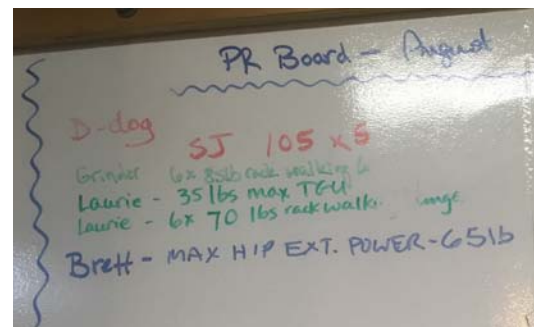 PR Board - August
D-dog SJ 105 x 5
Grinder 6x 85lb rack walking
Laurie - 35 lbs max TGU
Laurie - 6x 70 lbs rack walki unge
Brett - MAX HIP EXT. POWER - 65lb